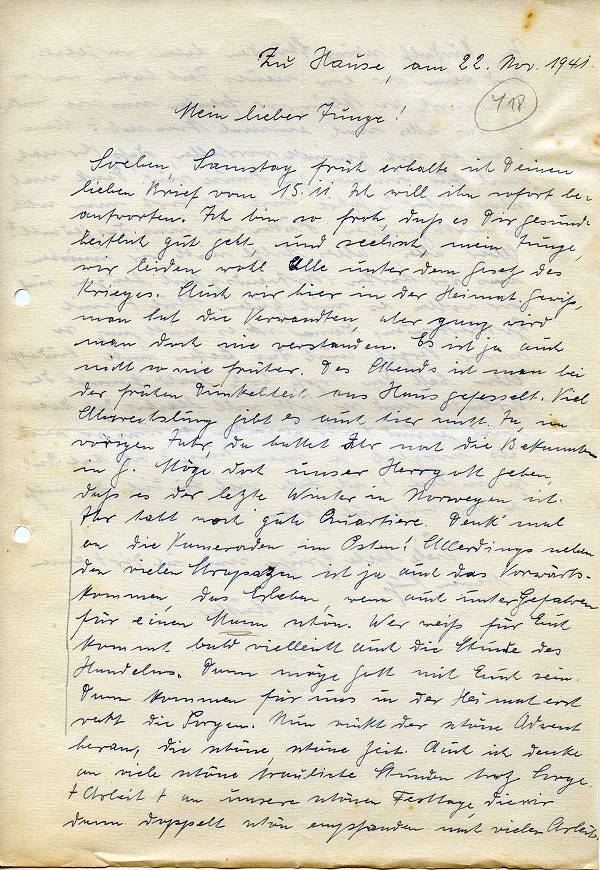 Zu Hause, am 22. Nov. 1941
118
Mein lieber Junge!
Soeben, Samstag früh erhalte ich Deinen
lieben Brief vom 15.11. Ich will ihn sofort be-
antworten. Ich bin so froh, daß es Dir gesund-
heitlich gut geht, und seelisch, mein Junge,
wir leiden wohl Alle unter dem Gesetz des
Krieges. Auch wir hier in der Heimat. Gewiß,
man hat die Verwandten, aber ganz wird
man doch nie verstanden. Es ist ja auch
nicht so wie früher. Des Abends ist man bei
der frühen Dunkelheit ans Haus gefesselt. Viel
Abwechslung gibt es auch hier nicht. Ja, im
vorigen Jahr, da hattet Ihr noch die Bekannten
in H. Möge doch unser Herrgott geben,
daß es der letzte Winter in Norwegen ist.
Ihr habt noch gute Quartiere. Denk' mal
an die Kameraden im Osten! Allerdings neben
den vielen Strapazen ist ja auch das Vorwärts-
kommen, das Erleben, wenn auch unter Gefahren
für einen Mann schön. Wer weiß für Euch
kommt bald vielleicht auch die Stunde des
Handelns. Dann möge Gott mit Euch sein.
Dann kommen für uns in der Heimat erst
recht die Sorgen. Nun rückt der schöne Advent
heran, die schöne, schöne Zeit. Auch ich denke
an viele schöne trauliche Stunden trotz Sorge
+ Arbeit + an unsere schönen Festtage, die wir
dann doppelt schön empfanden nach vieler Arbeit.